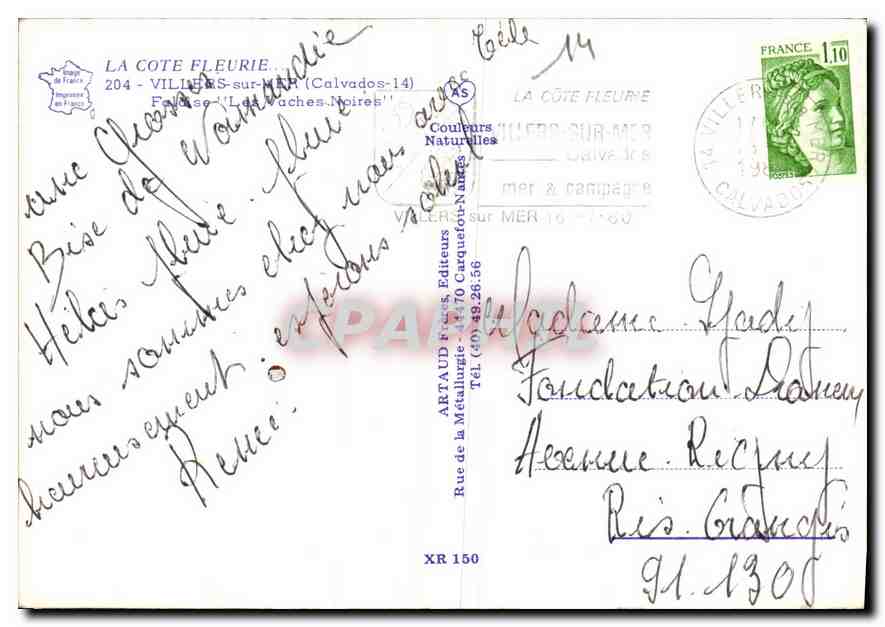 LA COTE FLEURIE...
204 - VILLERS-sur-MER (Calvados-14)
Falaise "Les Vaches Noires"
Image
de France
Imprimée
en France
Bise de Normandie
Hélas pluie. pluie.
nous sommes chez nous avec Télé
heureusement. espérons soleil
14
AS
Couleurs
Naturelles
ARTAUD Frères, Editeurs
Rue de la Métallurgie - 44470 Carquefou-Nantes
Tél. (40) 49.26.56
XR 150
CPAPHIL
LA CÔTE FLEURIE
VILLERS-SUR-MER
Calvados
mer & campagne
VILLERS sur MER 16-7-80
14 VILLERS MER
CALVADOS
FRANCE
1,10
POSTES
Madame
Fondation Dranem
Avenue. Rigny
Ris. Orangis
91.130